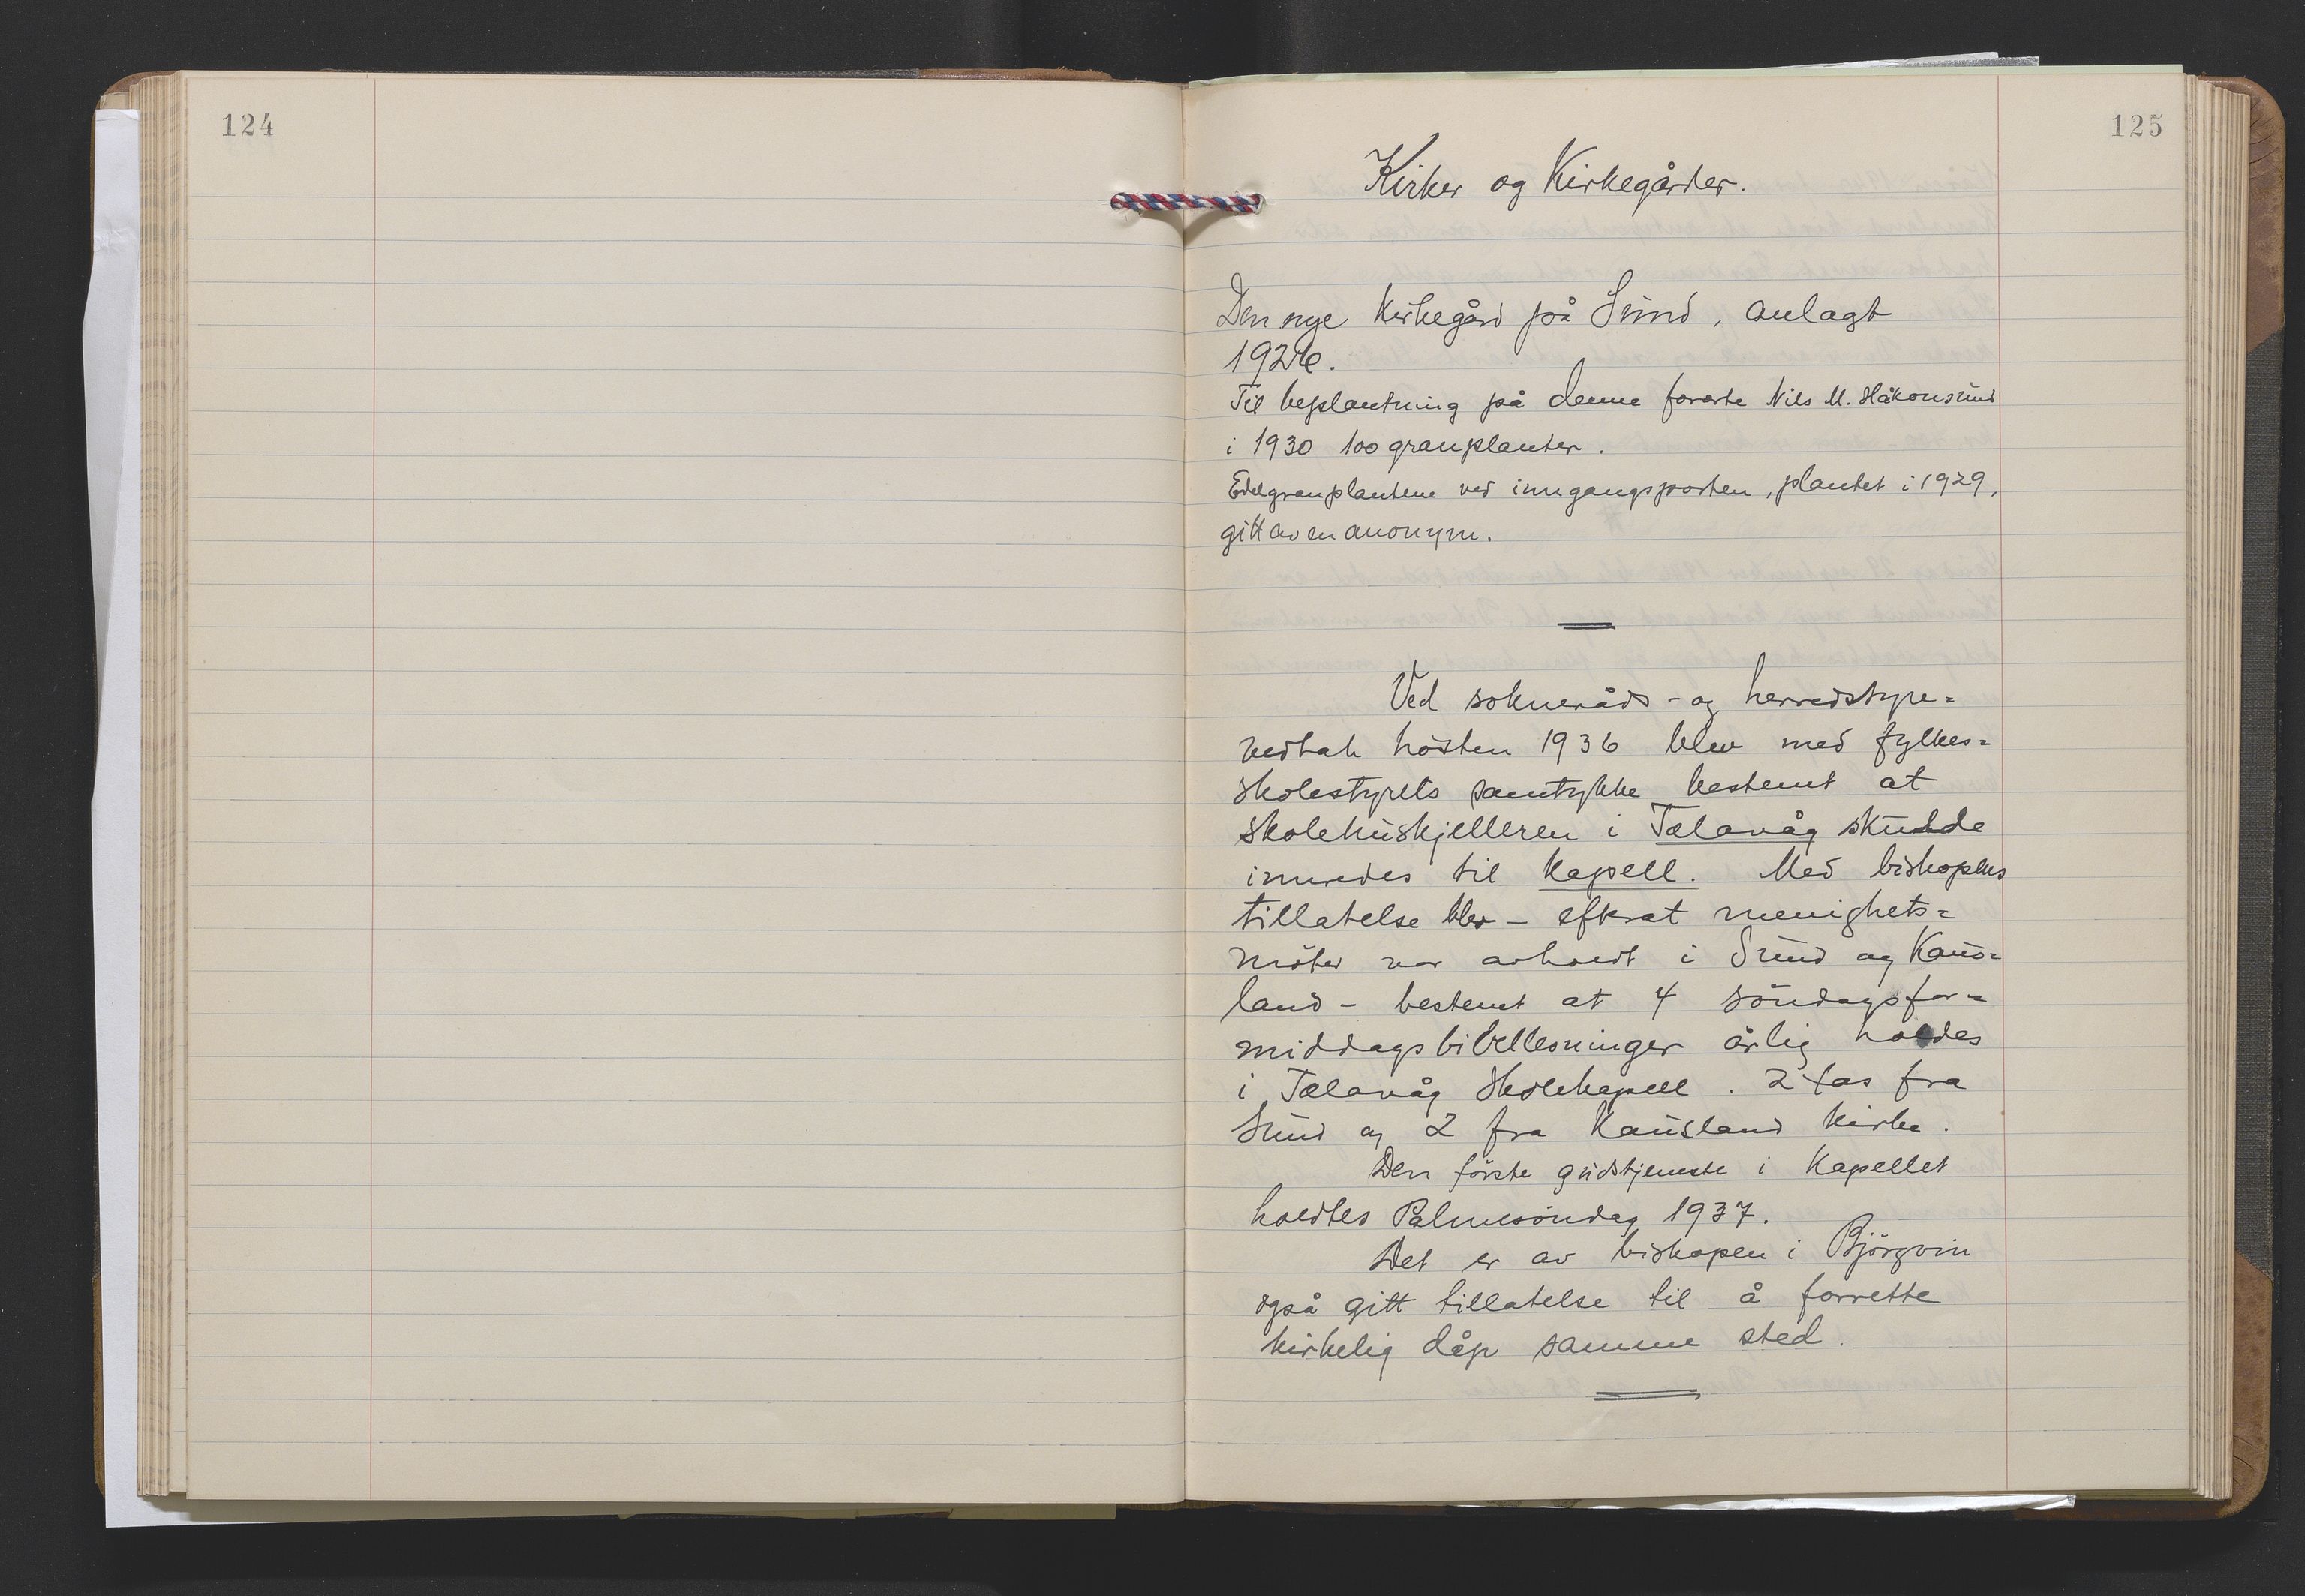 124
125
Kirker og Kirkegårder.
Den nye kirkegård på Sund, anlagt
Til beplantning på denne forærte Nils M. Håkonsund
i 1930 100 granplanter.
Edelgranplantene ved inngangsporten, plantet i 1929,
gitt av en anonym.
Ved sokneråds- og herredstyre=
vedtak hösten 1936 blev med fylkes=
skolestyrets samtykke bestemt at
skolehuskjelleren i Tælavåg skulde
innredes til kapell. Med biskopens
tillatelse blev - efterat menighets=
möter var avholdt i Sund og Kaus=
land - bestemt at 4 söndagsfor=
middagsbibellesninger årlig holdes
i Tælavåg skolekapell. 2 tas fra
Sund og 2 fra Kausland kirke.
Den förste gudstjeneste i kapellet
holdtes Palmesöndag 1937.
Det er av biskopen i Björgvin
også gitt tillatelse til å forrette
kirkelig dåp samme sted.